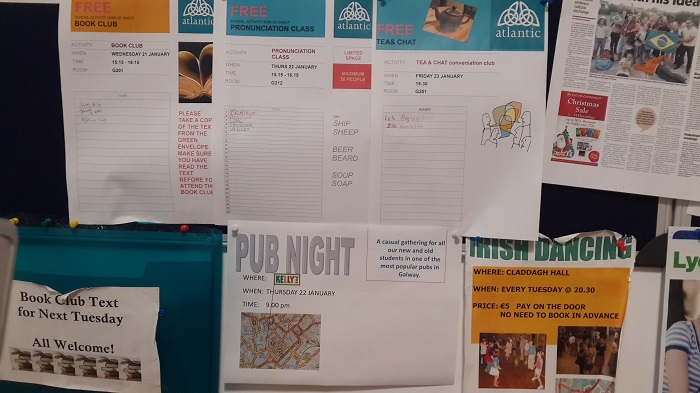 FREE
SCHOOL ACTIVITY SIGN UP SHEET
BOOK CLUB
atlantic
ACTIVITY BOOK CLUB
WHEN WEDNESDAY 21 JANUARY
TIME 15:15 - 16:15
ROOM G201
NAME
PLEASE
TAKE A COP
OF THE TEX
FROM THE
GREEN
ENVELOPE
MAKE SURE
YOU HAVE
READ THE
TEXT
BEFORE YO
ATTEND TH
BOOK CLUB
FREE
SCHOOL ACTIVITY SIGN UP SHEET
PRONUNCIATION CLASS
atlantic
ACTIVITY PRONUNCIATION
CLASS
WHEN THURS 22 JANUARY
TIME 15.15 - 16.15
ROOM G212
LIMITED
SPACE
MAXIMUM
20 PEOPLE
NAME
SHIP
SHEEP
BEER
BEARD
SOUP
SOAP
FREE
TEA & CHAT
atlantic
ACTIVITY: TEA & CHAT conversation club
WHEN FRIDAY 23 JANUARY
TIME 16:30
ROOM G201
NAME
Christmas
Sale
Book Club Text
for Next Tuesday
All Welcome!
PUB NIGHT
WHERE: KELLY'S
WHEN: THURSDAY 22 JANUARY
TIME: 9.00 pm
A casual gathering for all
our new and old
students in one of the
most popular pubs in
Galway.
IRISH DANCING
WHERE: CLADDAGH HALL
WHEN: EVERY TUESDAY @ 20.30
PRICE: €5 PAY ON THE DOOR
NO NEED TO BOOK IN ADVANCE